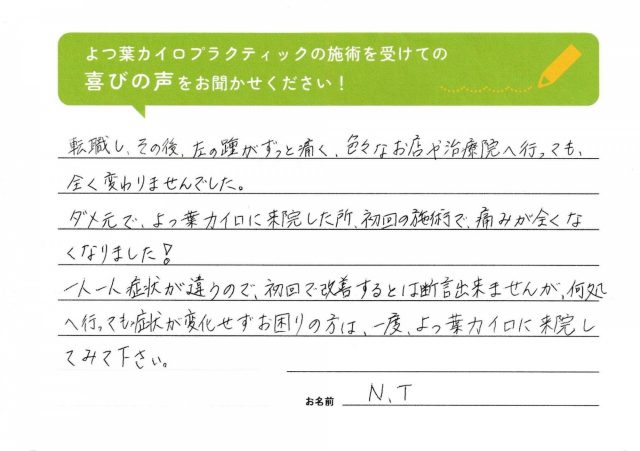 よつ葉カイロプラクティックの施術を受けての
喜びの声をお聞かせください！
転職し、その後、左の踵がずっと痛く、色々なお店や治療院へ行っても、
全く変わりませんでした。
ダメ元で、よつ葉カイロに来院した所、初回の施術で、痛みが全くな
くなりました！
一人一人症状が違うので、初回で改善するとは断言出来ませんが、何処
へ行っても症状が変化せずお困りの方は、一度、よつ葉カイロに来院し
てみて下さい。
お名前 N、T